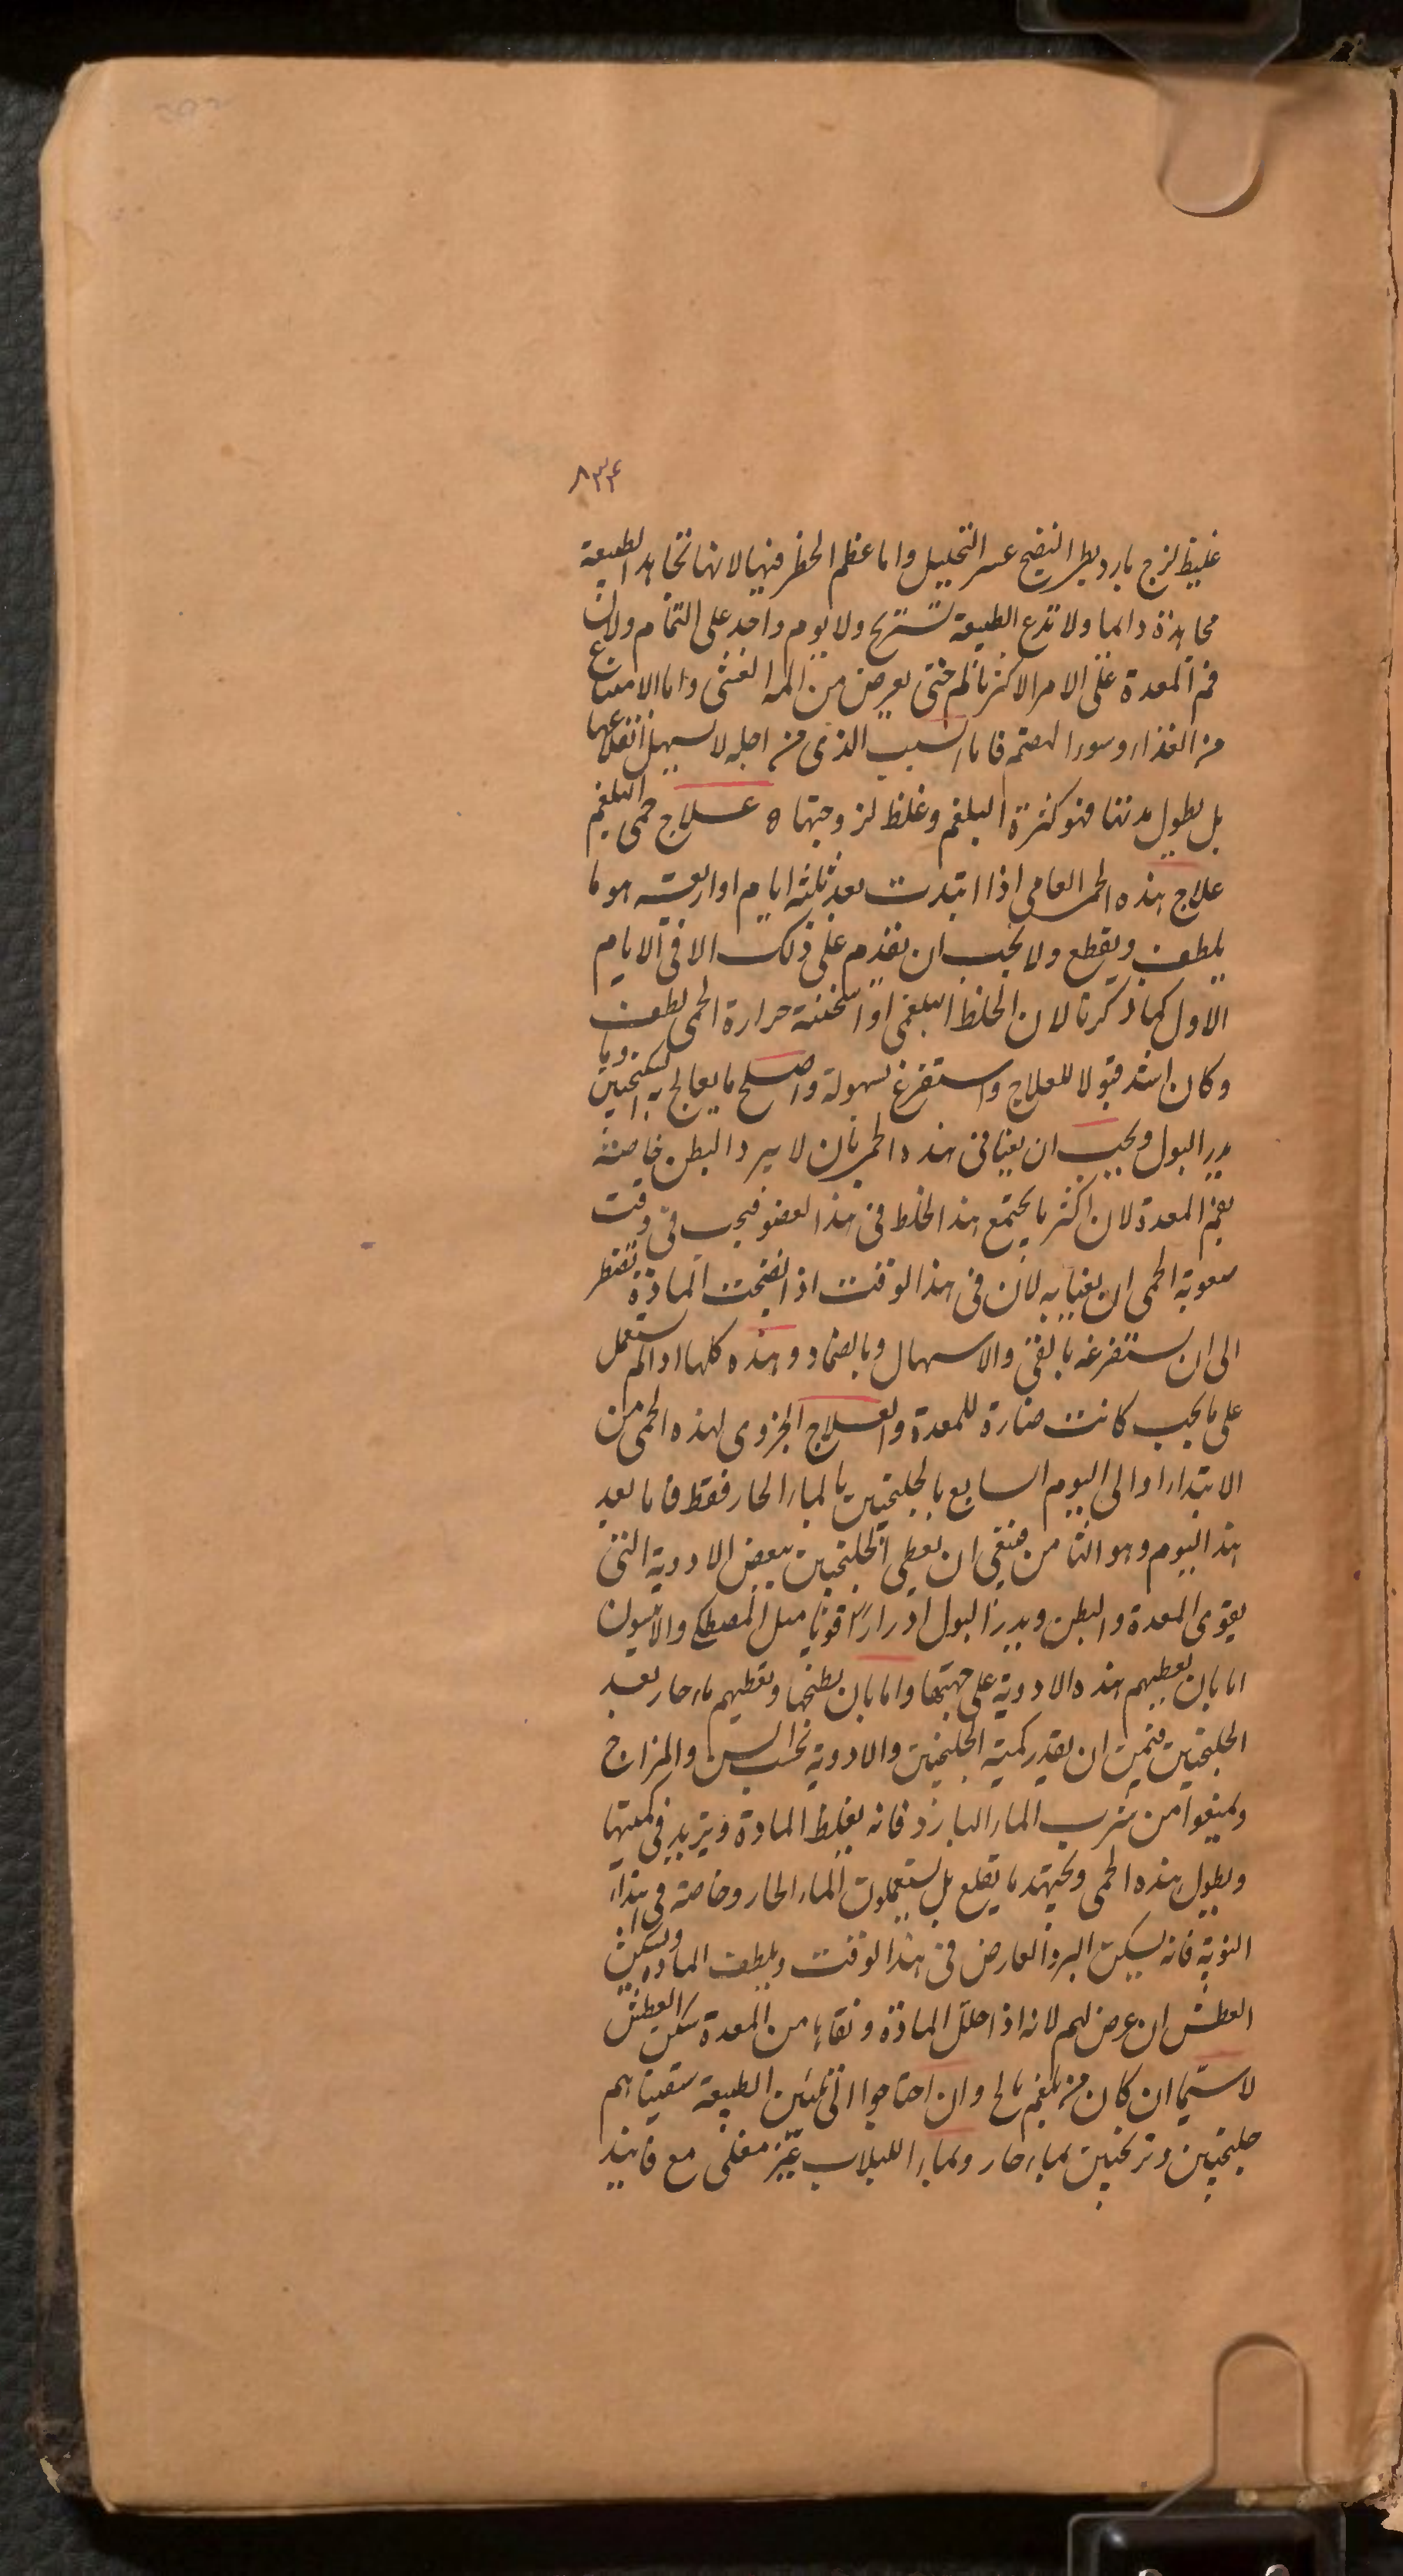 ٨٣٤
غليظ لزج بارد بطى النضج عسر التحليل واما عظم الخطر فيها لانها تجاهد الطبيعة
مجاهدة دائما ولا تدع الطبيعة تستريح ولا يوم واحد على التمام ولان
فم المعدة على الامر الاكثر يالم حتى يعرض من المه الغشى واما الامتناع
من الغذاء وسوء الهضم فاما السبب الذى من اجله لا يسهل انقلاعها
بل يطول مدتها فهو كثرة البلغم وغلظ لزوجتها ه علاج حمى البلغم
علاج هذه الحمى العامى اذا ابتدت بعد ثلثة ايام او اربعة هو ما
يلطف ويقطع ولا يجب ان يقدم على ذلك الا فى الايام
الاول كما ذكرنا لان الخلط البلغمى اذا سخنته حرارة الحمى لطف
وكان اشد قبولا للعلاج واستفرغ بسهولة واصلح ما يعالج به السكنجبين وما
يدر البول ويجب ان يعنا فى هذه الحمى بان لا يبرد البطن خاصة
بفم المعدة لان اكثر ما يجتمع هذا الخلط فى هذا العضو فيجب فى وقت
صعوبة الحمى ان يعنا به لان فى هذا الوقت اذا نضجت المادة تضطر
الى ان تستفرغه بالقى والاسهال وبالضماد وهذه كلها اذا لم تستعمل
على ما يجب كانت ضارة للمعدة والعلاج الجزوى لهذه الحمى من
الابتداء والى اليوم السابع بالجلنجبين بالماء الحار فقط فاما بعد
هذا اليوم وهو الثامن فينبغى ان يعطى الجلنجبين ببعض الادوية التى
يقوى المعدة والبطن ويدر البول ادرارًا قويا مثل المصطكى والانيسون
اما بان يعطيهم هذه الادوية على جهتها واما بان يطبخها ويعطيهم ماء حار بعد
الجلنجبين ان يقدر كمية الجلنجبين والادوية بحسب السن والمزاج
ويمنعوا من شرب الماء البارد فانه يغلظ المادة ويزيد فى كميتها
ويطول هذه الحمى ويجتهد ما يقلع بل يستعملون الماء الحار وخاصة فى ابتداء
النوبة فانه يسكن البرد العارض فى هذا الوقت ويلطف المادة ويسكن
العطش ان عرض لهم لانه اذا حلل المادة ونقاها من المعدة سكن العطش
لا سيما ان كان من بلغم مالح وان احتاجوا الى تليين الطبيعة سقيناهم
جلنجبين وترنجبين بماء حار وبماء اللبلاب غير مغلى مع فانيذ